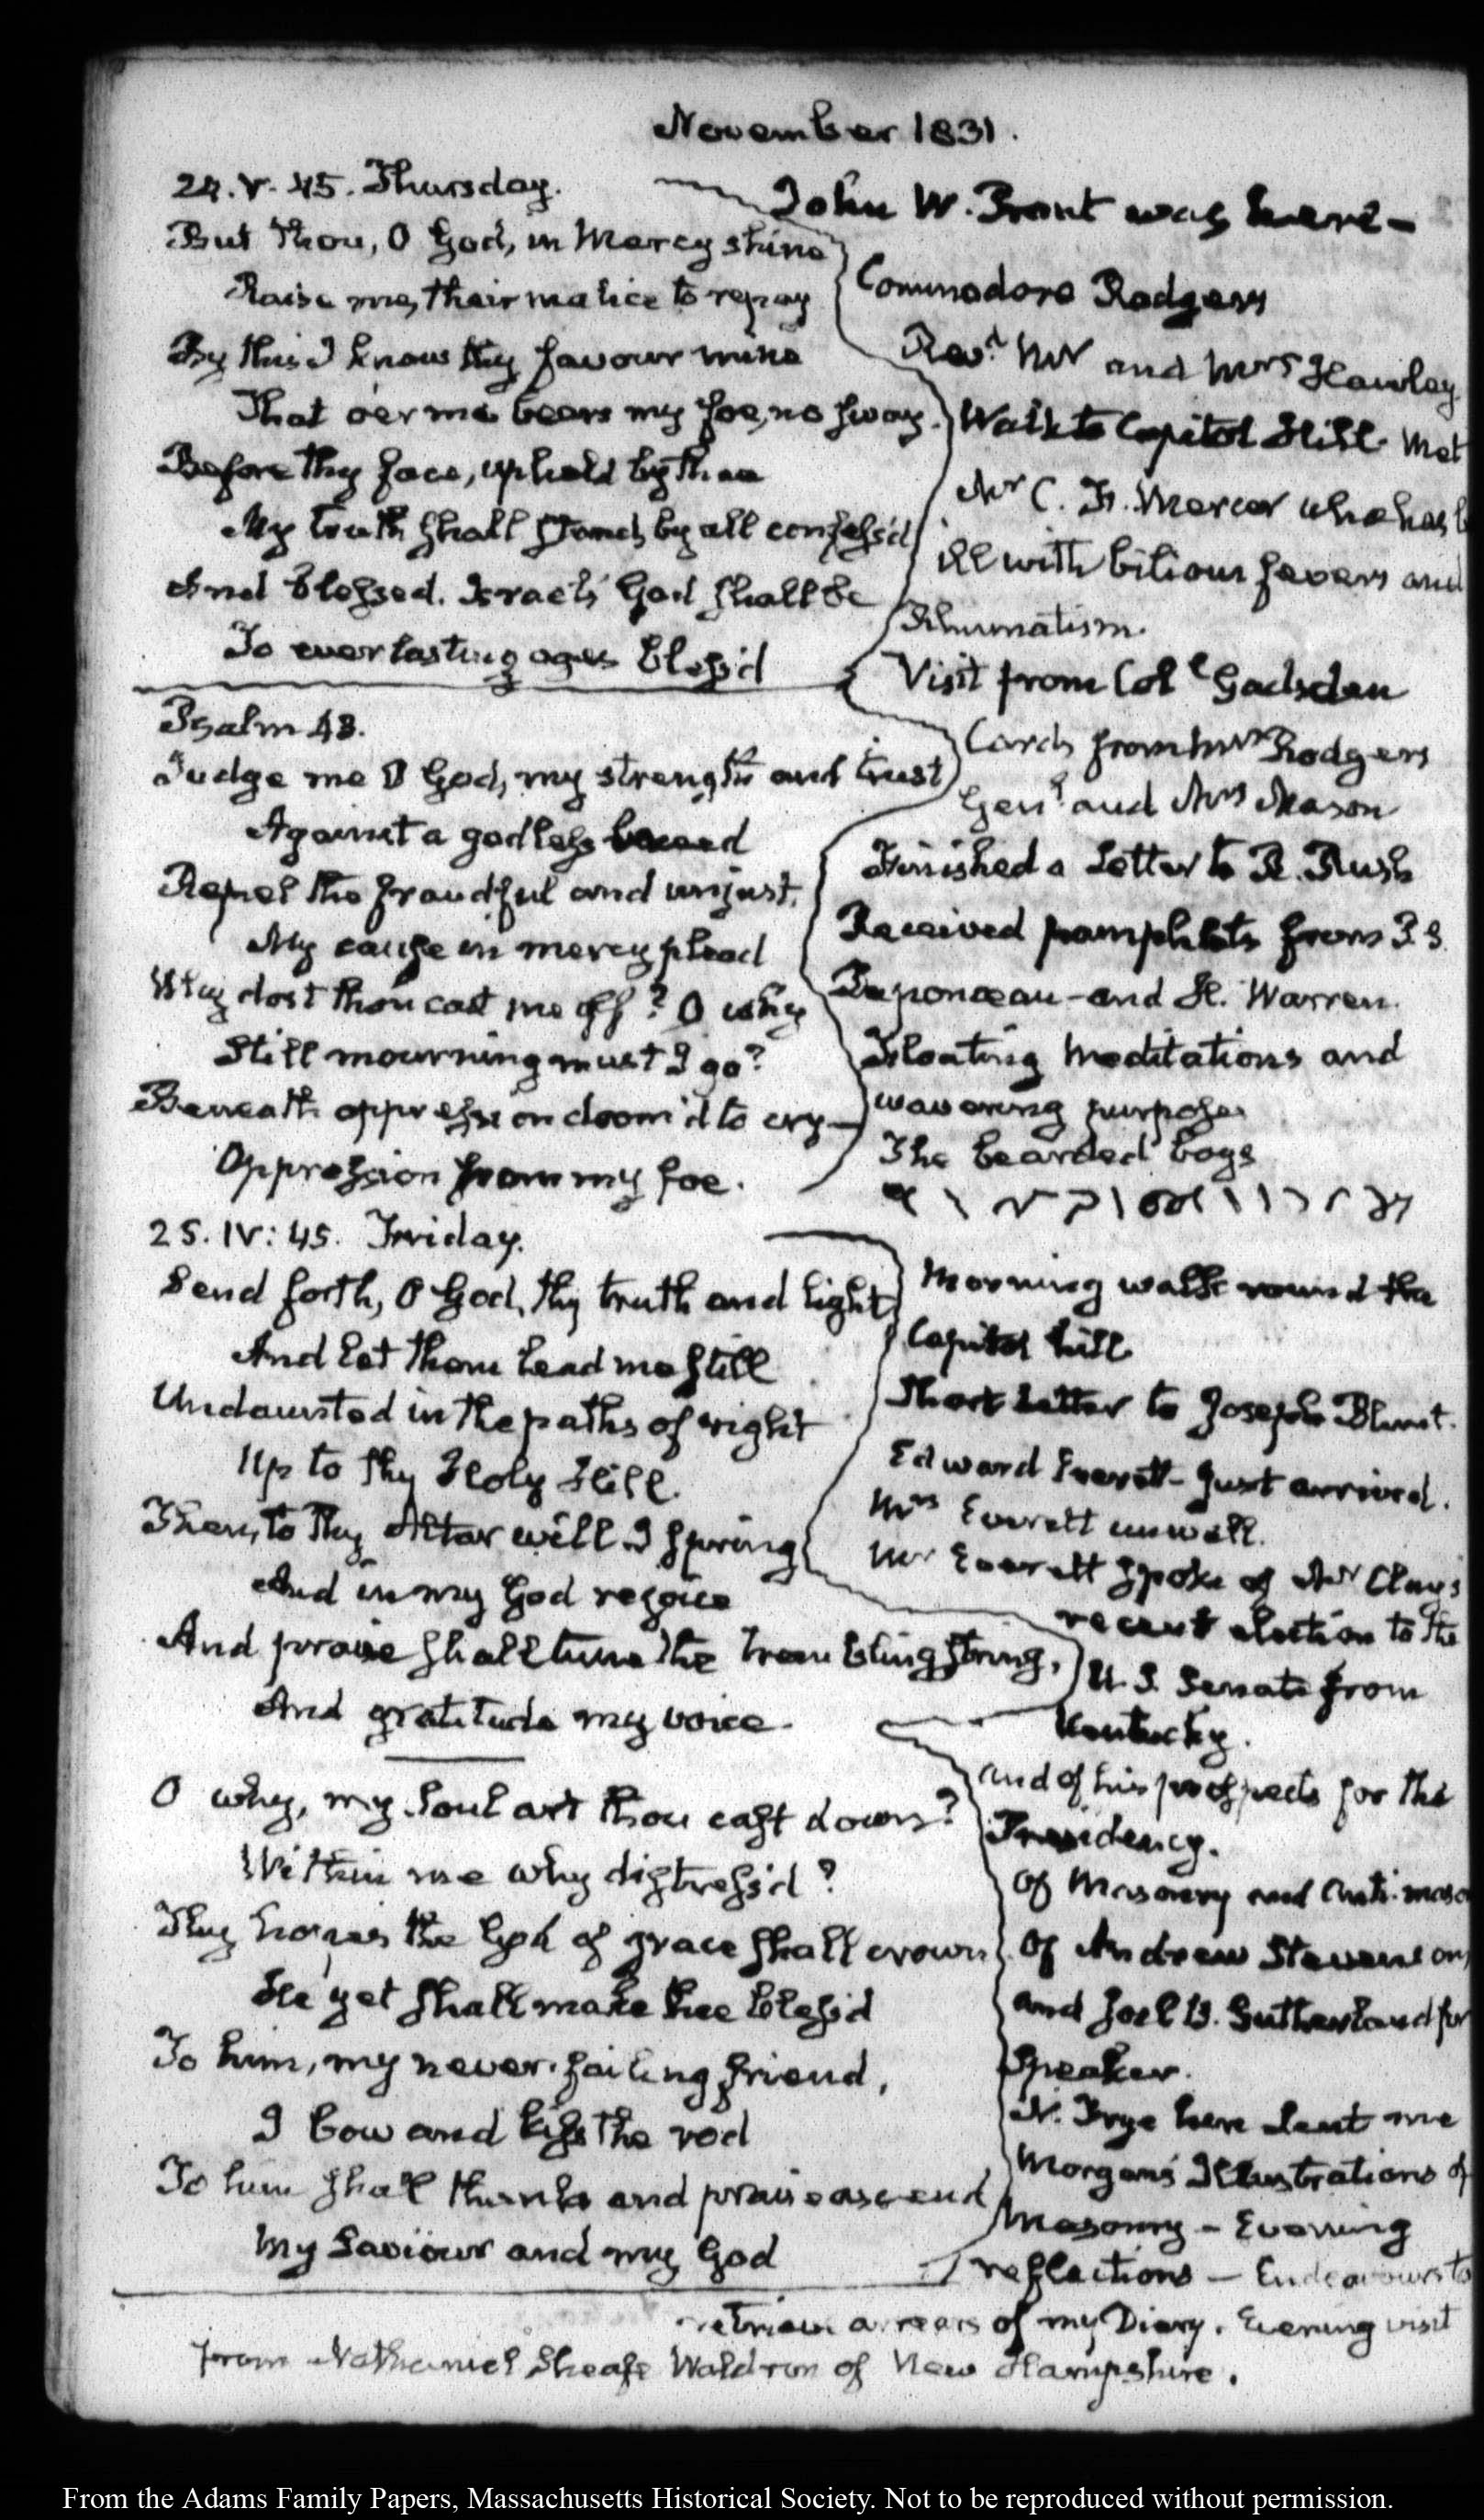 November 1831.
24. V. 45. Thursday.
But Thou, O God, in Mercy shine
Raise me, their malice to repay
By this I know thy favour mine
That oer me bears my foe, no sway.
Before thy face, upheld by thee
My truth shall stand, by all confess'd
And blessed. Israel's God shall be
To everlasting ages bless'd
John W. Brent was here-
Commodore Rodgers
Revd. Mr and Mrs Hawley
Walk to Capitol Hill. Met
Mr C. F. Mercer who has b
ill with bilious fevers and
Rhumatism.
Visit from Coll Gadsden
Cards from Mrs Rodgers
Genl. and Mrs Mason
Finished a Letter to R. Rush
Received pamphlets from P. S.
Duponceau - and H. Warren.
Floating meditations and
wavering purposes
The bearded boys
Psalm 43.
Judge me O God, my strength and trust
Against a godless
Repel the fraudful and unjust.
My cause in mercy plead
Why dost thou cast me off? O why
Still mourning must I go?
Beneath oppression doom'd to cry -
Oppression from my foe.
25. IV: 45. Friday.
Send forth, O God, thy truth and light
And let them lead me still
Undaunted in the paths of right
Up to thy Holy Hill.
Then, to Thy Altar will I spring
And in my God rejoice
And praise shall tune the trembling string,
And gratitude my voice.
O why, my Soul art thou cast down?
Within me why distress'd?
Thy hopes the God of grace shall crown
He yet shall make thee bless'd
To him, my never-failing friend,
I bow and kiss the rod
To him shall thanks and praise ascend
My Saviour and my God
Morning walk round the
Capitol hill
Short Letter to Joseph Blunt.
Edward Everett - just arrived.
Mrs Everett unwell.
Mr Everett spoke of Mr Clay's
recent election to the
U. S. Senate from
Kentucky.
and of his prospects for the
Presidency.
Of Masonry and Anti-maso
Of Andrew Stevenson,
and Joel B. Sutherland for
Speaker.
N. Frye here Lent me
Morgan's Illustrations of
Masonry - Evening
reflections - Endeavours to
retrieve arrears of my Diary. Evening visit
from Nathaniel Sheafe Waldron of New Hampshire.
From the Adams Family Papers, Massachusetts Historical Society. Not to be reproduced without permission.